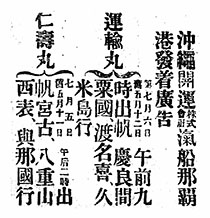 沖繩開運株式會社汽船那覇
港發着廣告
運輸丸
七月六日
五月十二日
午前九
時出帆慶良間
粟國渡名喜久
米島行
仁壽丸
七月五日
五月十一日
午后二時出
帆宮古八重山
西表與那國行